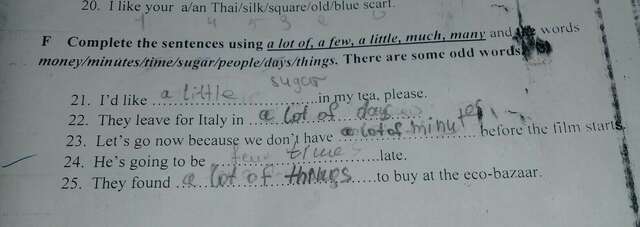 20. I like your a/an Thai/silk/square/old/blue scarf.
F Complete the sentences using a lot of, a few, a little, much, many and words
money/minutes/time/sugar/people/days/things. There are some odd words.
sugar
21. I'd like a little in my tea, please.
22. They leave for Italy in a lot of days
23. Let's go now because we don't have a lot of minutes before the film starts.
24. He's going to be few time late.
25. They found a lot of things to buy at the eco-bazaar.